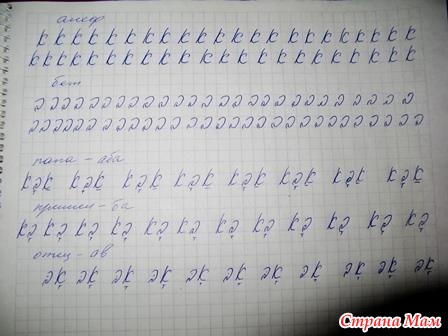 алеф
א א א א א א א א א א א א א א א א א א א א א א
א א א א א א א א א א א א א א א א א א א א א א א
бет
ב ב ב ב ב ב ב ב ב ב ב ב ב ב ב ב ב ב ב ב ב ב ב ב ב
ב ב ב ב ב ב ב ב ב ב ב ב ב ב ב ב ב ב ב ב ב ב ב ב ב
папа - аба
אַבָּא אַבָּא אַבָּא אַבָּא אַבָּא אַבָּא אַבָּא אַבָּא
пришел - ба
בָּא בָּא בָּא בָּא בָּא בָּא בָּא בָּא בָּא בָּא בָּא בָּא
отец - ав
אָב אָב אָב אָב אָב אָב אָב אָב אָב אָב אָב
Страна Мам